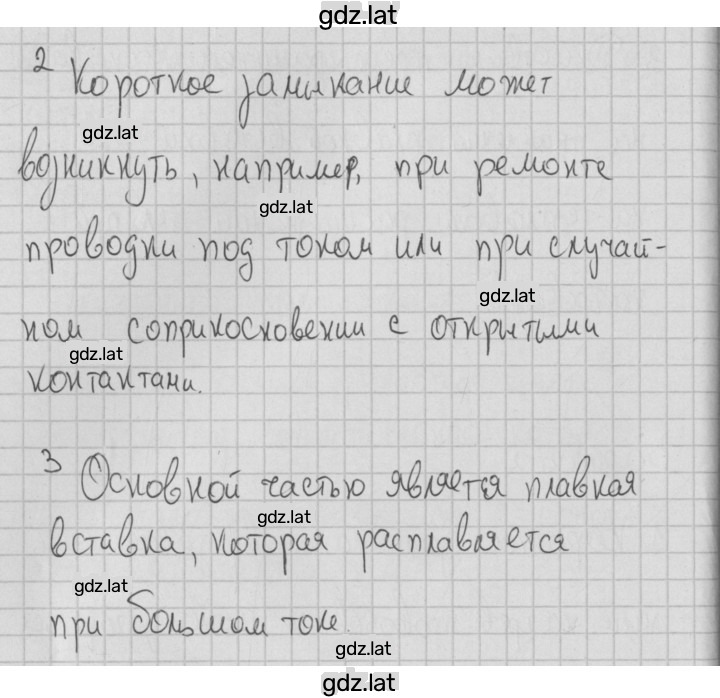 gdz.lat
2 Короткое замыкание может
gdz.lat
возникнуть, например, при ремонте
gdz.lat
проводки под током или при случай-
gdz.lat
ном соприкосновении с открытыми
gdz.lat
контактами.
3 Основной частью является плавкая
gdz.lat
вставка, которая расплавляется
gdz.lat
при большом токе.
gdz.lat
gdz.lat